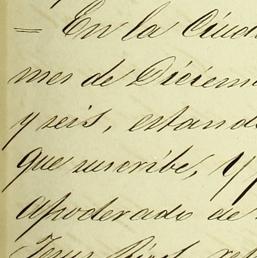 = En la Ciud
mes de Diciem
y seis, estand
que suscribe, y
apoderado de